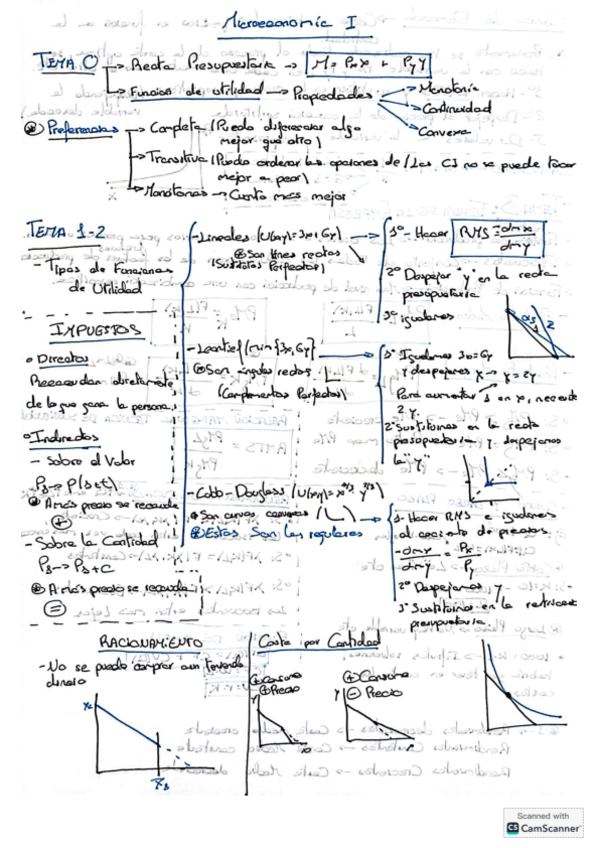 Microeconomía I
TEMA 0 → Recta Presupuestaria → M = Pxx + PyY
→ Función de utilidad → Propiedades → Monotonía
→ Continuidad
→ Convexa
* Preferencias → Completa (Puedo diferenciar algo
mejor que otro)
→ Transitiva (Puedo ordenar las opciones de
mejor a peor)
→ Monótonas → Cuanto más mejor
TEMA 1-2
- Tipos de Funciones
de Utilidad
- Lineales (U(x,y)=3x+6y)
* Son líneas rectas
(Sustitutos Perfectos)
1º - Hacer RMS = dmx / dmy
2º Despejar "y" en la recta
presupuestaria
3º igualamos
- Leontief (min{3x, 6y}
* Son ángulos rectos
(Complementos Perfectos)
1º Igualamos 3x=6y
y despejamos x → x=2y
Para aumentar 1 en x, necesito
2 y.
2º Sustituimos en la recta
presupuestaria y despejamos
la "y"
- Cobb-Douglass
* Son curvas convexas
* Estas son las regulares
1- Hacer RMS e igualamos
al cociente de precios
- dmx / dmy = Px / Py
2º Despejamos y
3º Sustituimos en la restricción
presupuestaria.
IMPUESTOS
Directos
Recaudan directamente
de lo que gana la persona
Indirectos
- Sobre el Valor
Ps → P(1+t)
* A más precio se recauda
+
- Sobre la Cantidad
Ps → Ps+C
* A más precio se recauda
=
RACIONAMIENTO
- No se puede comprar aun teniendo
dinero
Coste por Cantidad
+ Consumo
+ Precio
+ Consumo
- Precio
Scanned with
CS CamScanner